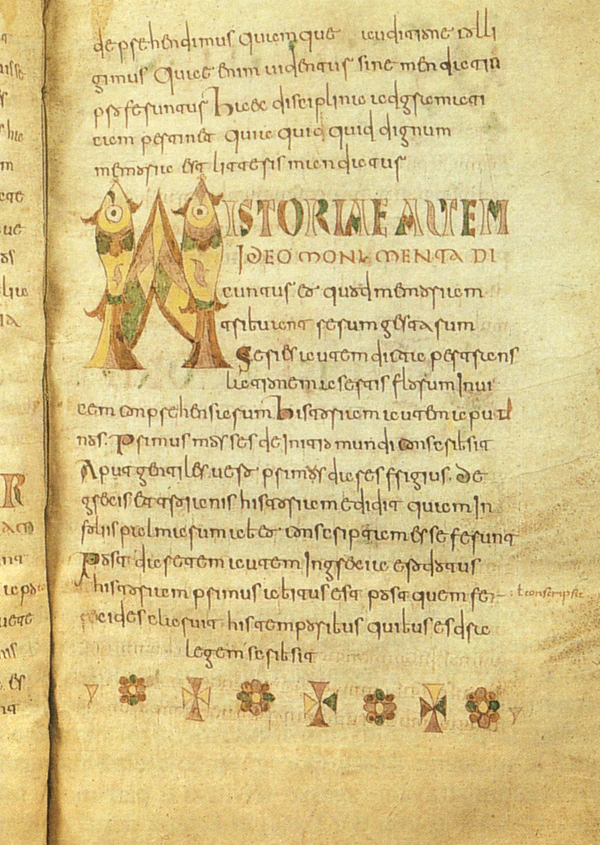 deprehendimus quam que auditione colli
gimus Quae enim uidentur sine mendatiu
proferuntur Haec disciplina adgramati
cam pertinet quia quid quid dignum
memoria est litteris mandatur
HISTORIAE AUTEM
IDEO MONUMENTA DI
cuntur eo quod memoriam
tribuant rerum gestarum
Series autem dicta per trans
lationem a sertis florum Inui
cem conprehensarum Historiam autem aput
nos. Primus moses de initio mundi conscribsit
Aput gentiles uero primos dares frigius. De
grecis et troianis historiam edidit quam in
foliis palmarum ab eo conscriptam esse ferunt
Post daretem autem in grecia erodotus
historiam primus abitus est post quem fer
ecides claruit his temporibus quibus esdra
legem scribsit